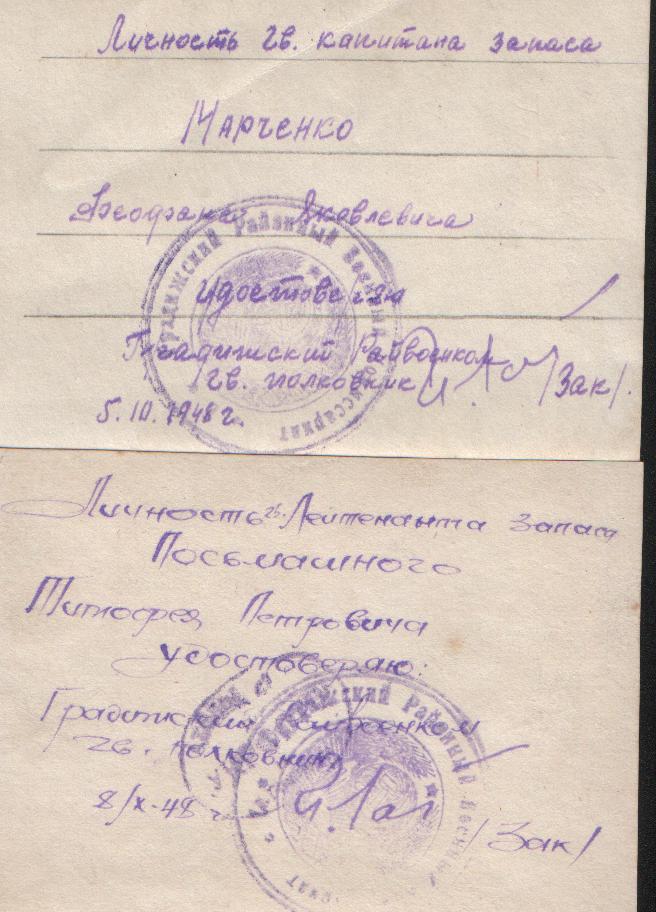 Личность гв. капитана запаса
Марченко
Феофана Яковлевича
удостоверяю
Градижский Райвоенком
гв. полковник /Зак/.
5.10.1948 г.
Градижский Районный Военный Комиссариат
Личность гв. Лейтенанта запаса
Посьмашного
Тимофея Петровича
удостоверяю:
Градижский Райвоенком
гв. полковник
8/X-48 г. /Зак/
Градижский Районный Военный